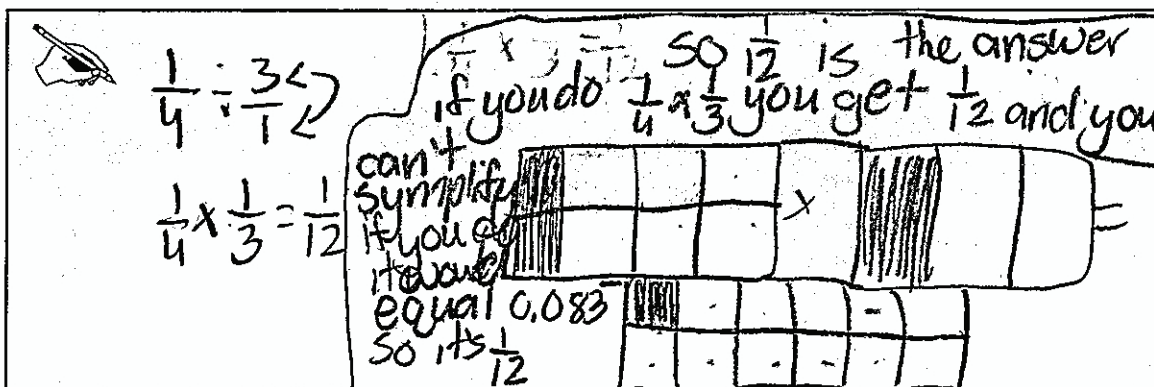 1/4 ÷ 3/1
1/4 × 1/3 = 1/12
so 1/12 is the answer
if you do 1/4 × 1/3 you get 1/12 and you
can't
symplify
if you do
it
equal 0.083
so it's 1/12
×
=